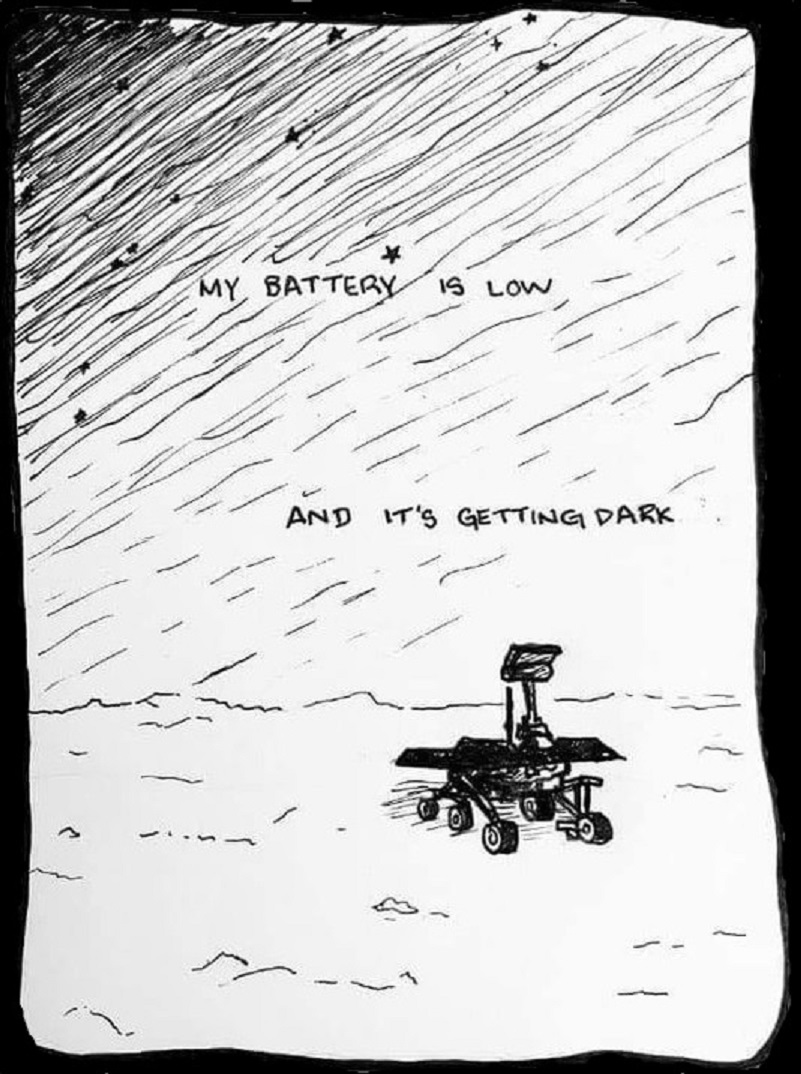 MY BATTERY IS LOW
AND IT'S GETTING DARK